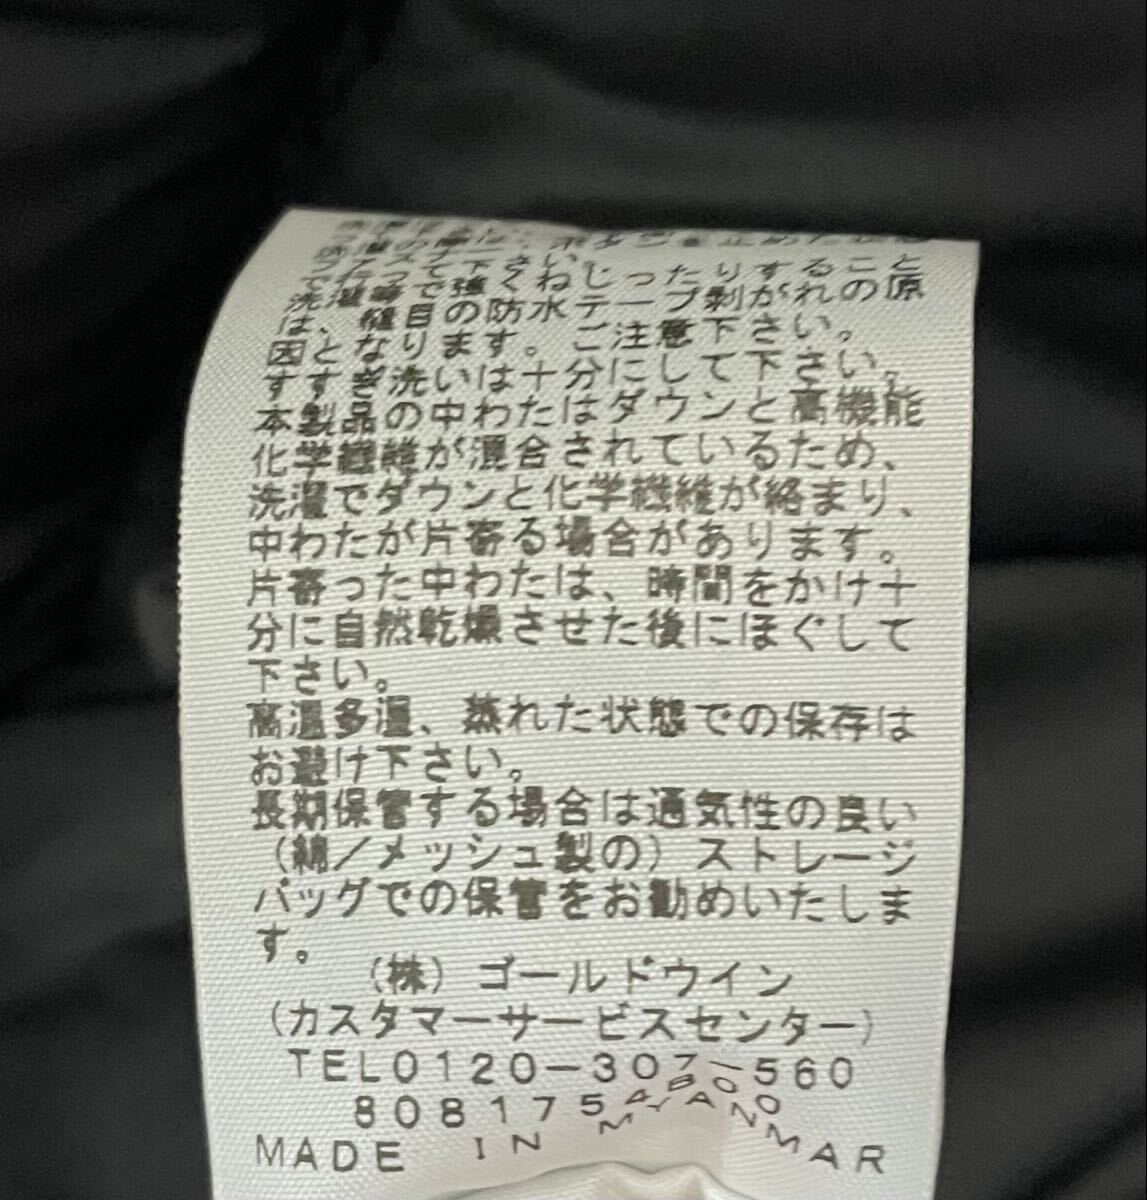 洗濯時に強くねじったりすること
は、縫目の防水テープ剥がれの原
因となります。ご注意下さい。
すすぎ洗いは十分にして下さい。
本製品の中わたはダウンと高機能
化学繊維が混合されているため、
洗濯でダウンと化学繊維が絡まり、
中わたが片寄る場合があります。
片寄った中わたは、時間をかけ十
分に自然乾燥させた後にほぐして
下さい。
高温多湿、蒸れた状態での保存は
お避け下さい。
長期保管する場合は通気性の良い
（綿／メッシュ製の）ストレージ
バッグでの保管をお勧めいたしま
す。
（株）ゴールドウイン
（カスタマーサービスセンター）
TEL0120-307-560
MADE IN MYANMAR